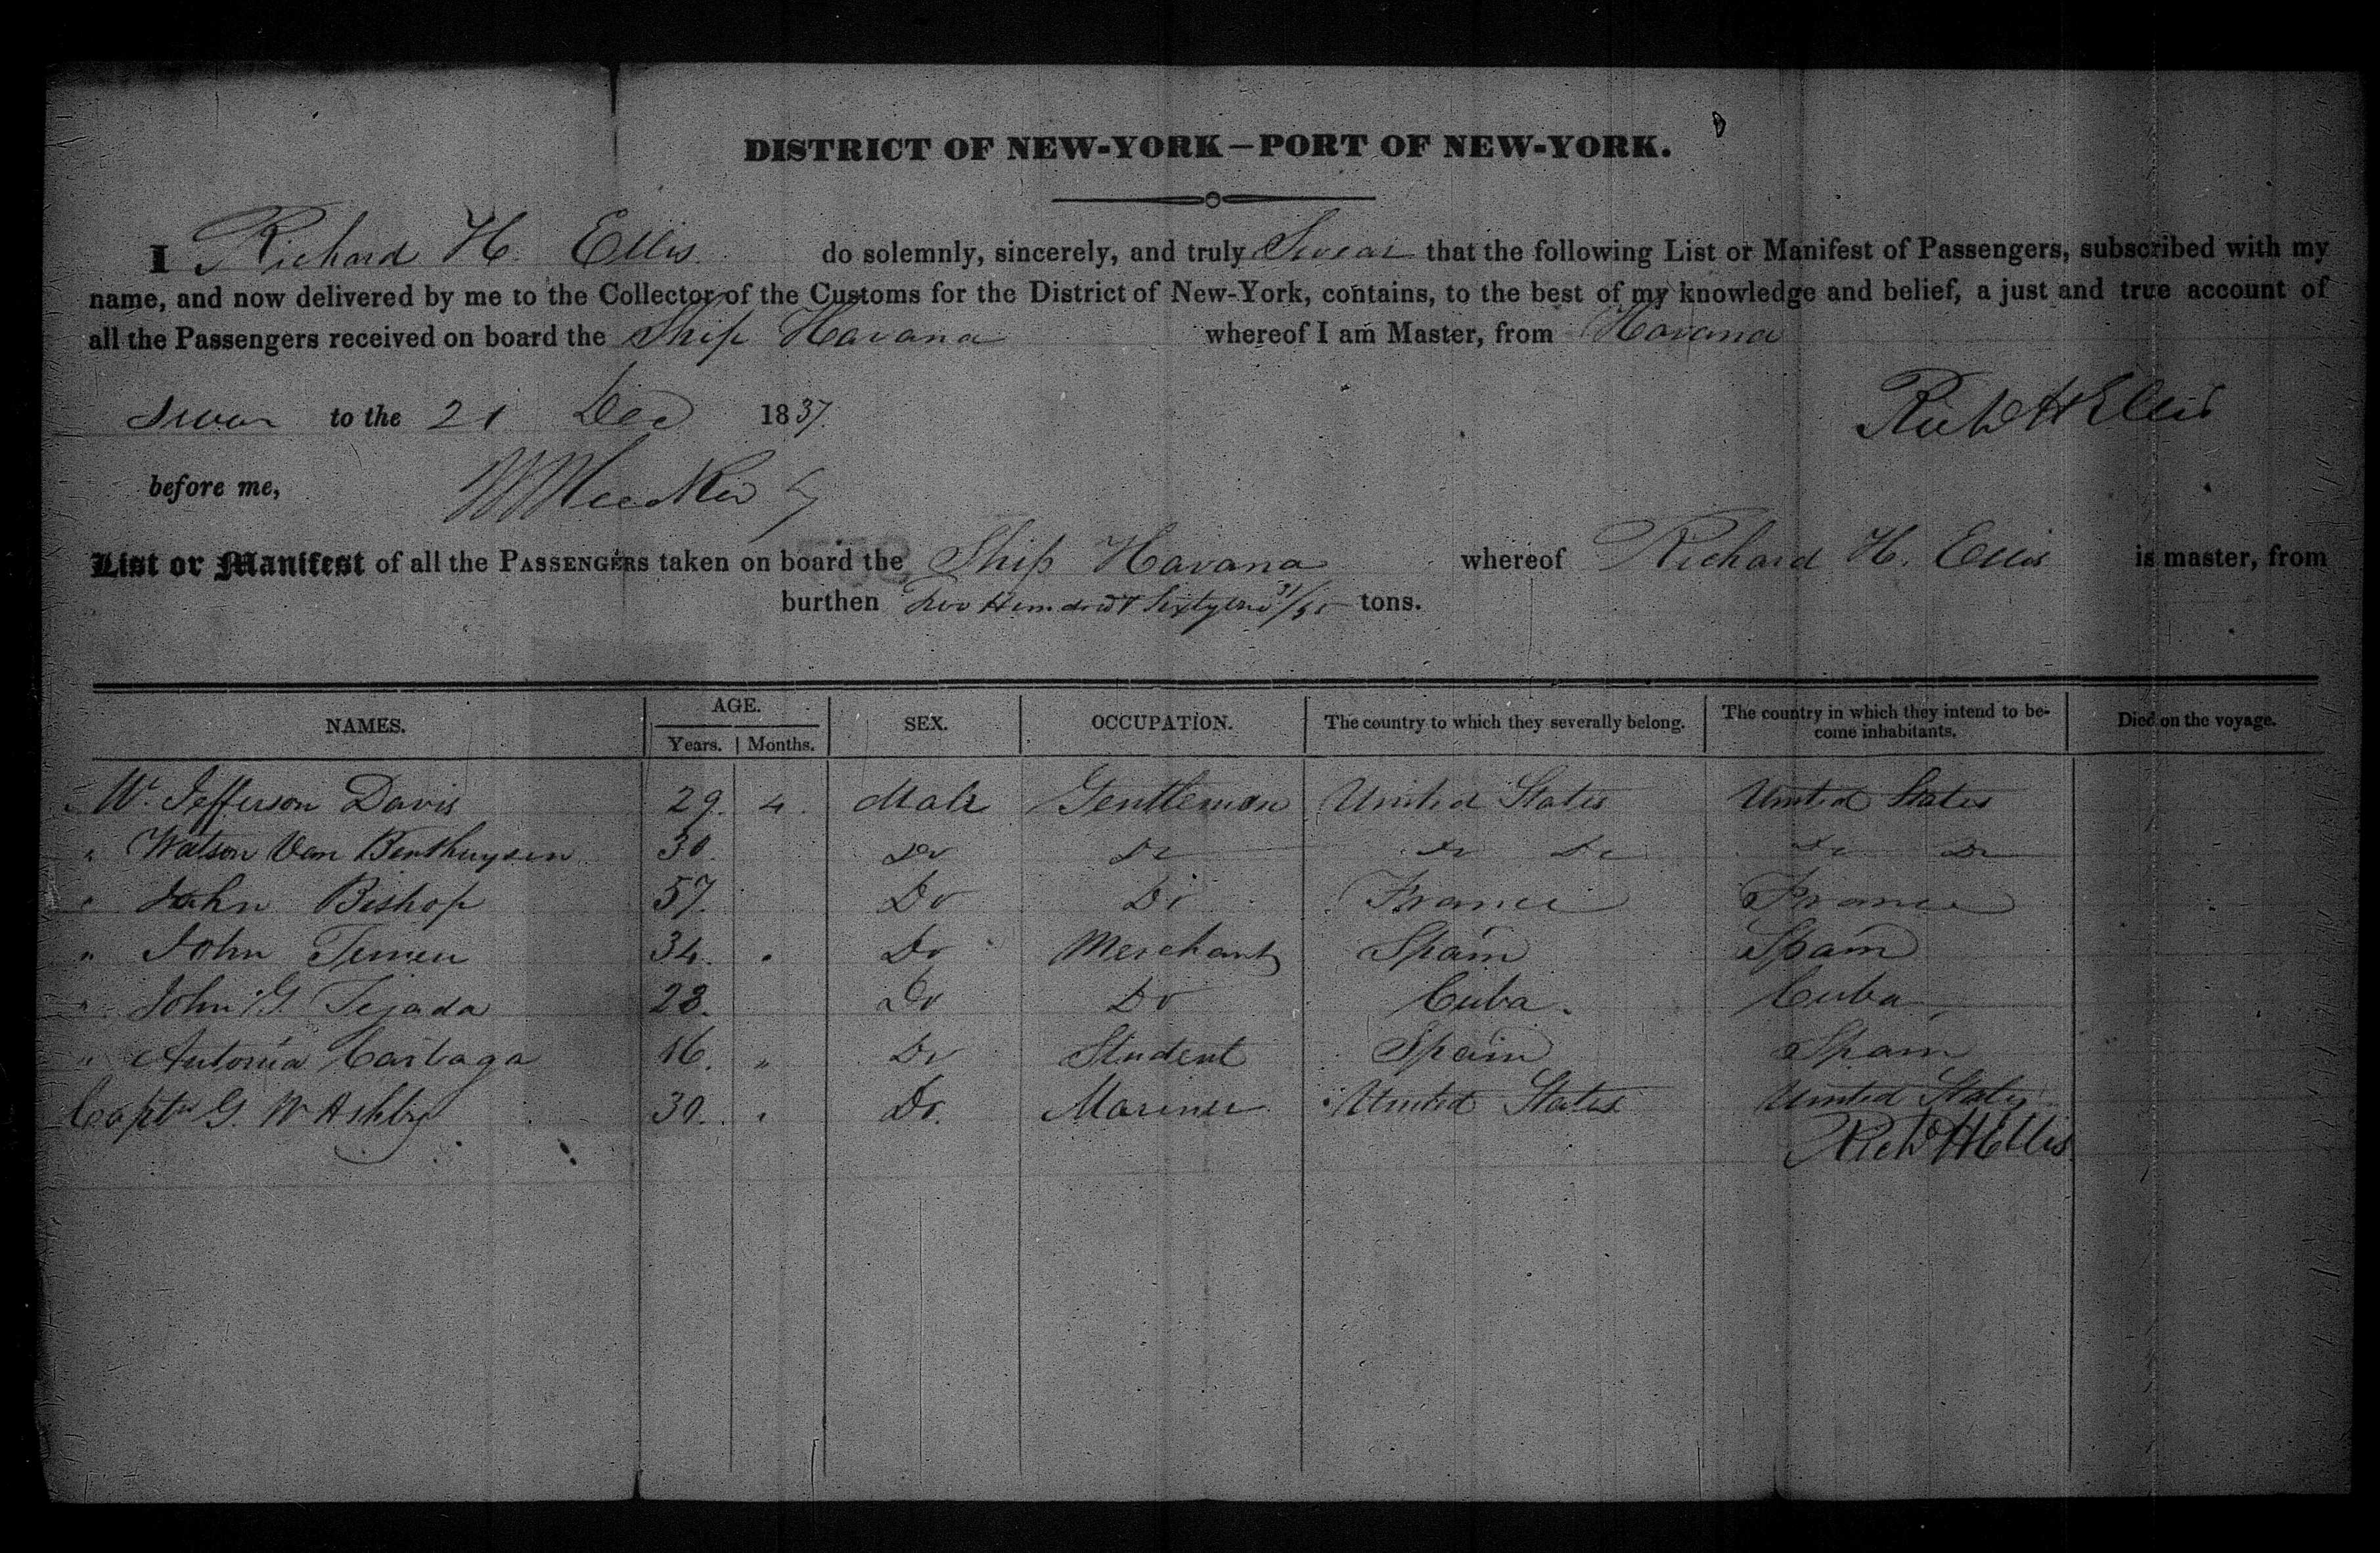 DISTRICT OF NEW-YORK—PORT OF NEW-YORK.
I Richard H. Ellis do solemnly, sincerely, and truly Swear that the following List or Manifest of Passengers, subscribed with my
name, and now delivered by me to the Collector of the Customs for the District of New-York, contains, to the best of my knowledge and belief, a just and true account of
all the Passengers received on board the Ship Havana whereof I am Master, from Havana
Swor to the 21 Dec 1837.
Richd H Ellis
before me,
List or Manifest of all the PASSENGERS taken on board the Ship Havana whereof Richard H. Ellis is master, from
burthen Two Hundred & Sixty 31/95 tons.
NAMES. AGE. SEX. OCCUPATION. The country to which they severally belong. The country in which they intend to be-come inhabitants. Died on the voyage.
Years. Months.
Jefferson Davis 29. 4. Male Gentleman United States United States
" Watson Van Benthuysen 30. Do Do Do Do Do Do
" John Bishop 57. Do Do France France
" John 34. Do Merchant Spain Spain
" John G. Tejada 28. Do Do Cuba. Cuba
" Antonia 16. " Do Student Spain Spain
Captn G. W Ashby 30. " Do. Mariner United States United States
Richd H Ellis